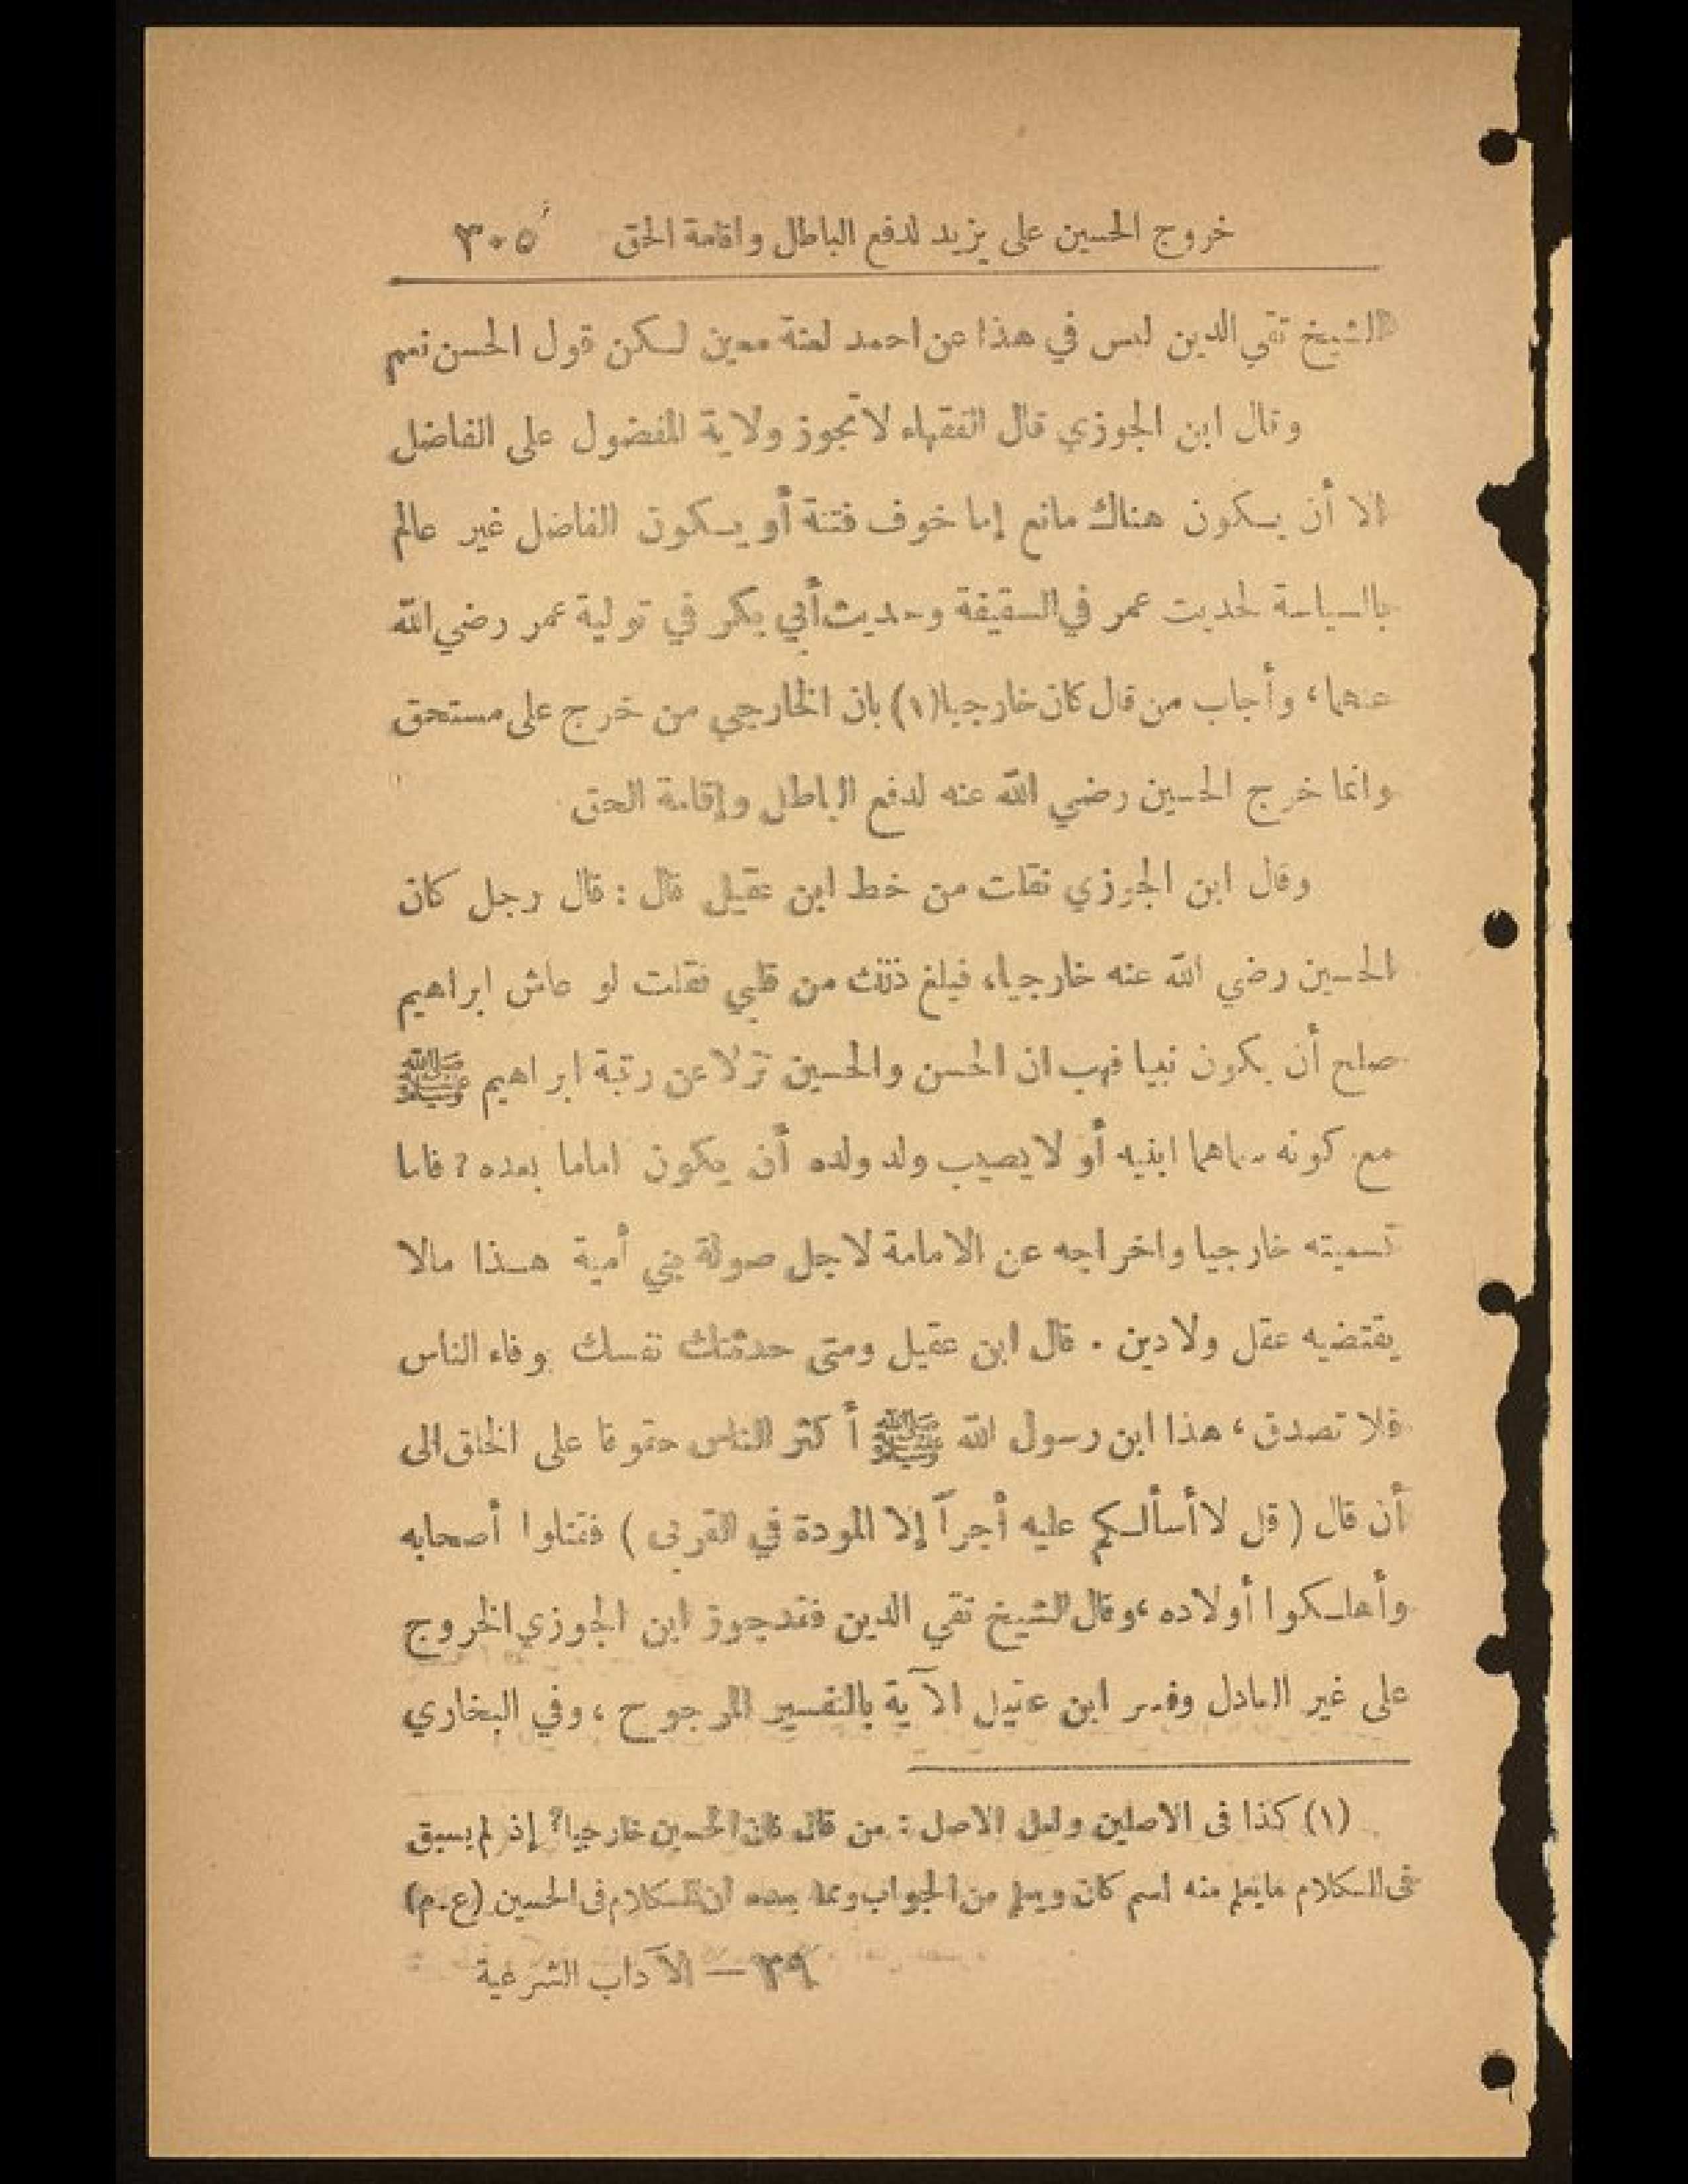 خروج الحسين على يزيد لدفع الباطل واقامة الحق ٣٠٥
الشيخ تقي الدين ليس في هذا عن احمد لعنة معين لكن قول الحسن نعم
وقال ابن الجوزي قال الفقهاء لا تجوز ولاية المفضول على الفاضل
الا أن يكون هناك مانع إما خوف فتنة أو يكون الفاضل غير عالم
بالسياسة لحديث عمر في السقيفة وحديث أبي بكر في تولية عمر رضي الله
عنهما، وأجاب من قال كان خارجيا(١) بان الخارجي من خرج على مستحق
وانما خرج الحسين رضي الله عنه لدفع الباطل وإقامة الحق
وقال ابن الجوزي نقلت من خط ابن عقيل قال : قال رجل كان
الحسين رضي الله عنه خارجيا، فبلغ ذلك من قلبي فقلت لو عاش ابراهيم
صلح أن يكون نبيا فهب ان الحسن والحسين نزلا عن رتبة ابراهيم ﷺ
مع كونه سماهما ابنيه أو لا يصيب ولد ولده أن يكون اماما بعده ؟ فاما
تسميته خارجيا واخراجه عن الامامة لاجل صولة بني أمية هذا مالا
يقتضيه عقل ولا دين . قال ابن عقيل ومتى حدثتك نفسك بوفاء الناس
فلا تصدق، هذا ابن رسول الله ﷺ أكثر الناس حقوقا على الخلق الى
أن قال ( قل لا أسألكم عليه أجراً إلا المودة في القربى ) فقتلوا أصحابه
وأهلكوا أولاده، وقال الشيخ تقي الدين فقد جوز ابن الجوزي الخروج
على غير العادل وفسر ابن عقيل الآية بالتفسير المرجوح، وفي البخاري
(١) كذا فى الاصلين ولعل الاصل : من قال كان الحسين خارجيا؟ إذ لم يسبق
فى الكلام ما يعلم منه اسم كان ويعلم من الجواب ومما بعده ان الكلام فى الحسين (ع.م)
٣٩ — الآداب الشرعية